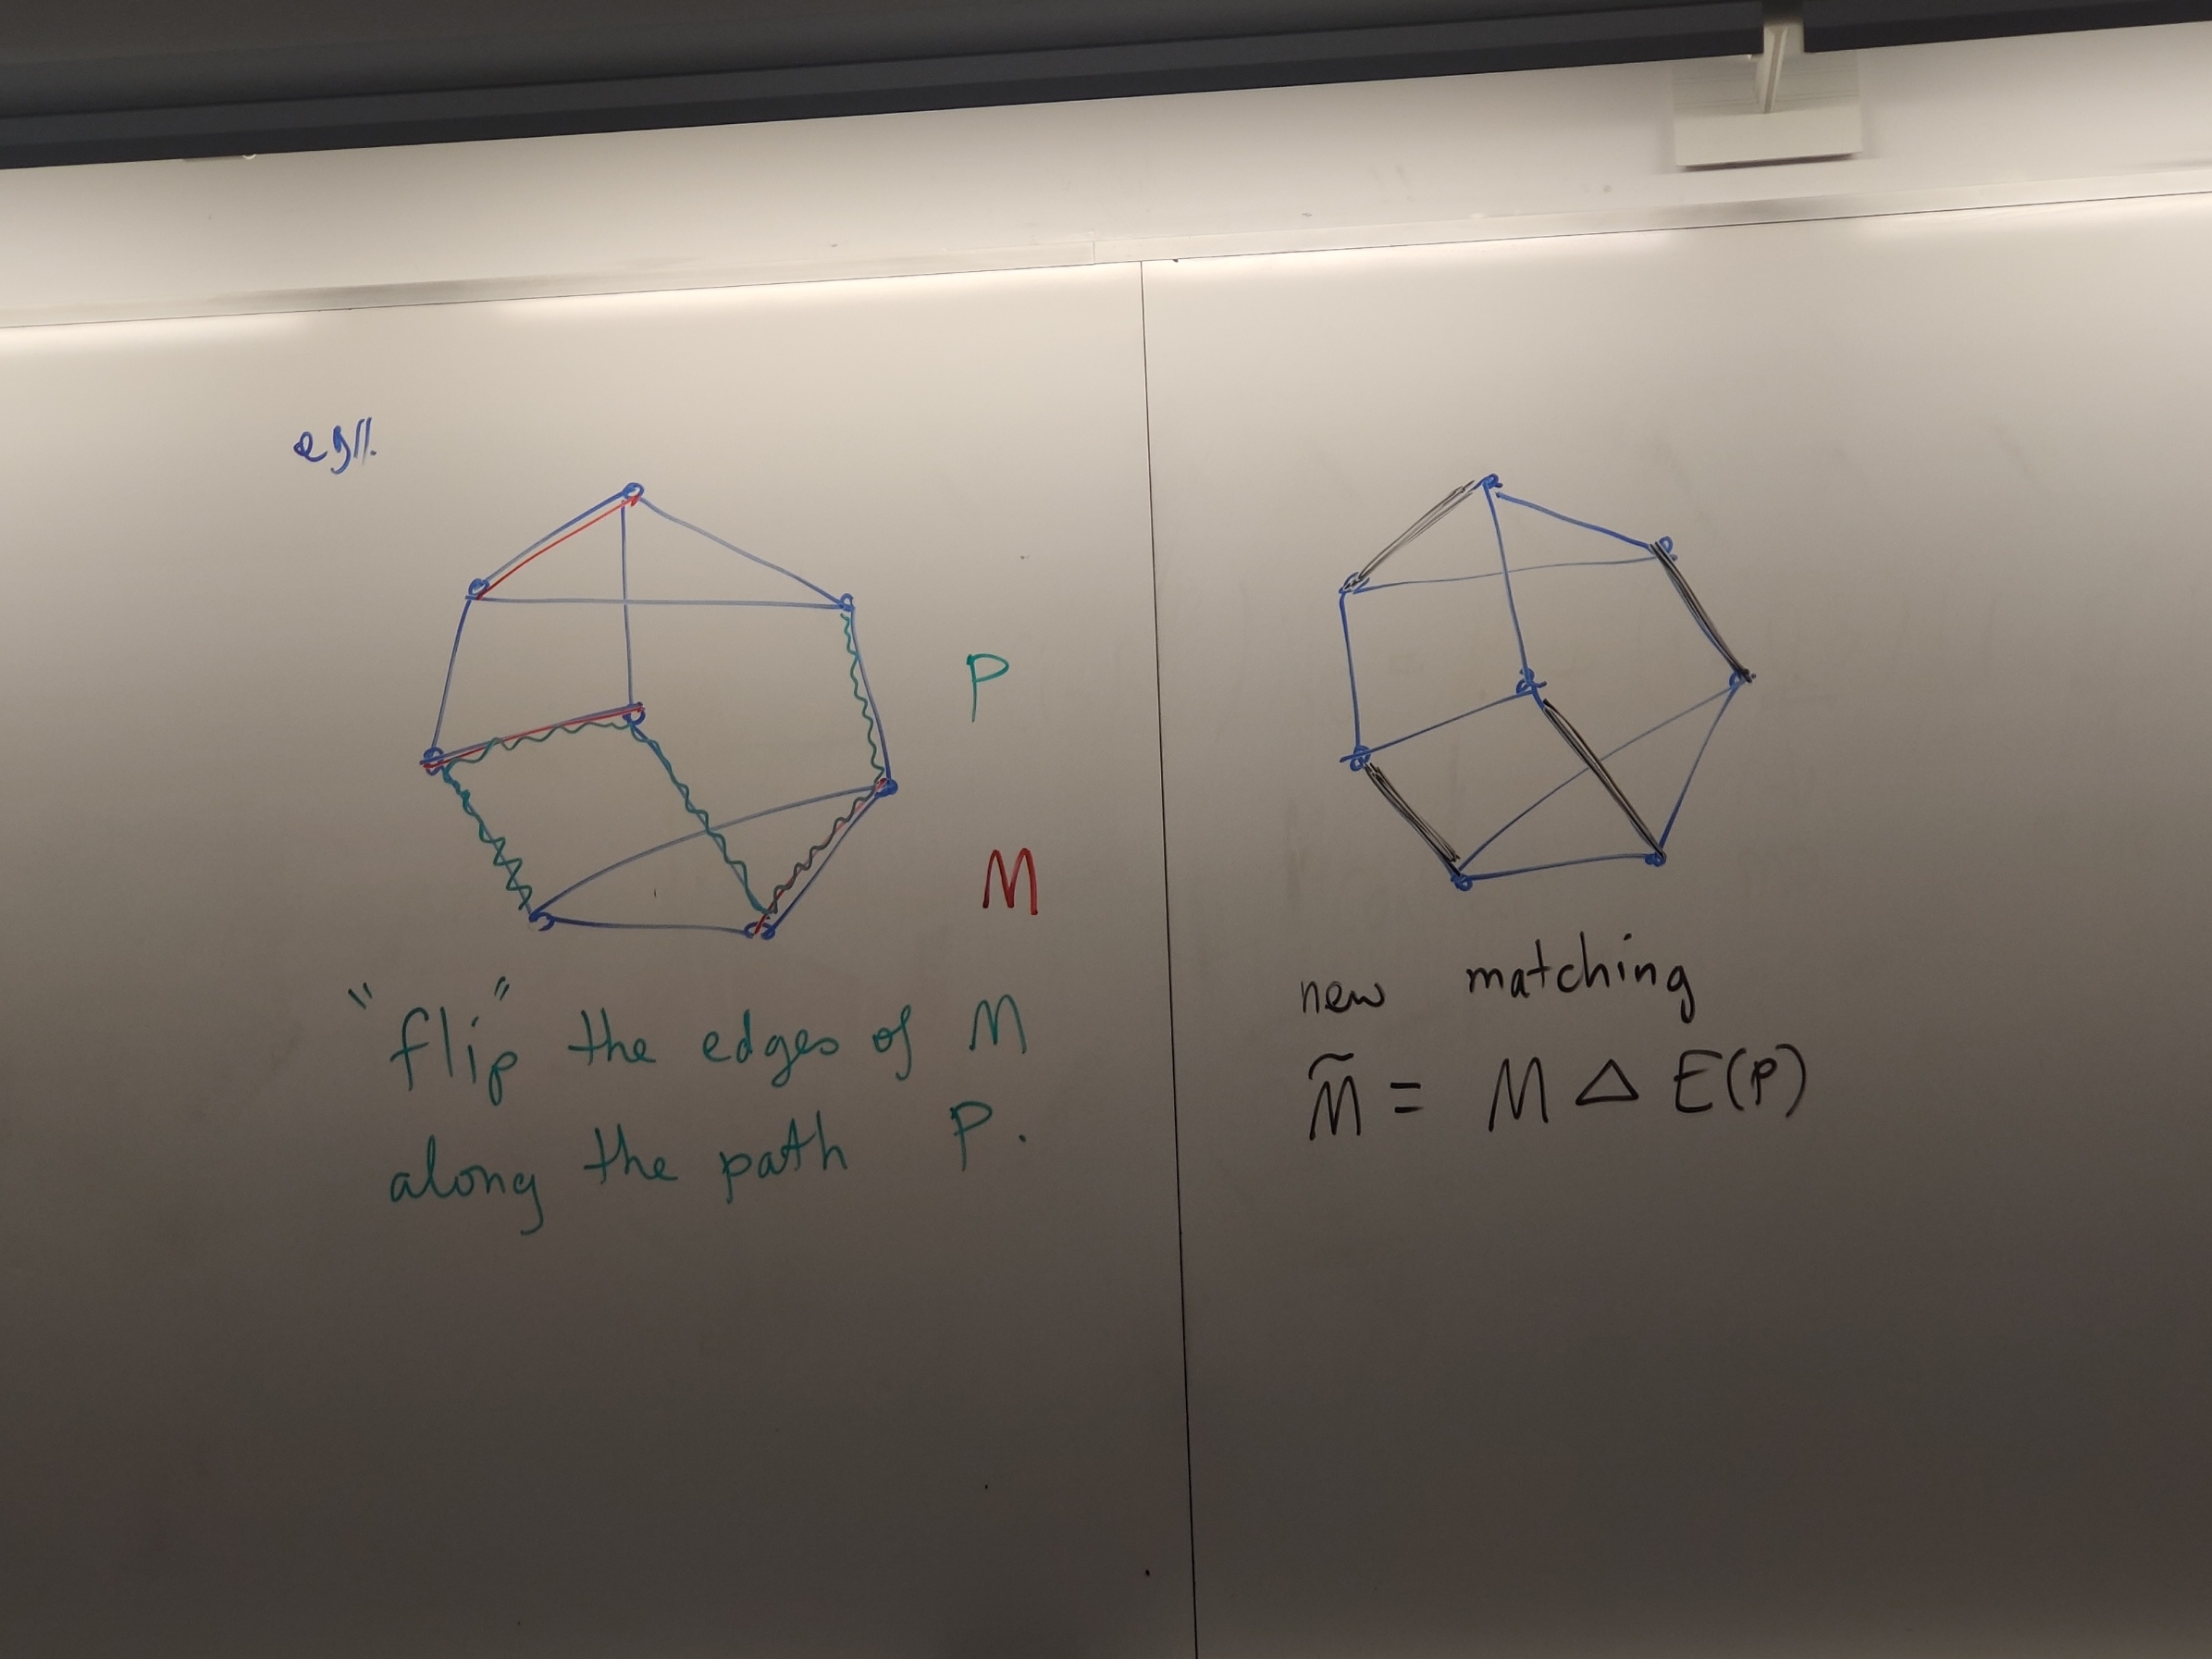 eg//.
P
M
"flip" the edges of M
along the path P.
new matching
M̃ = M △ E(P)